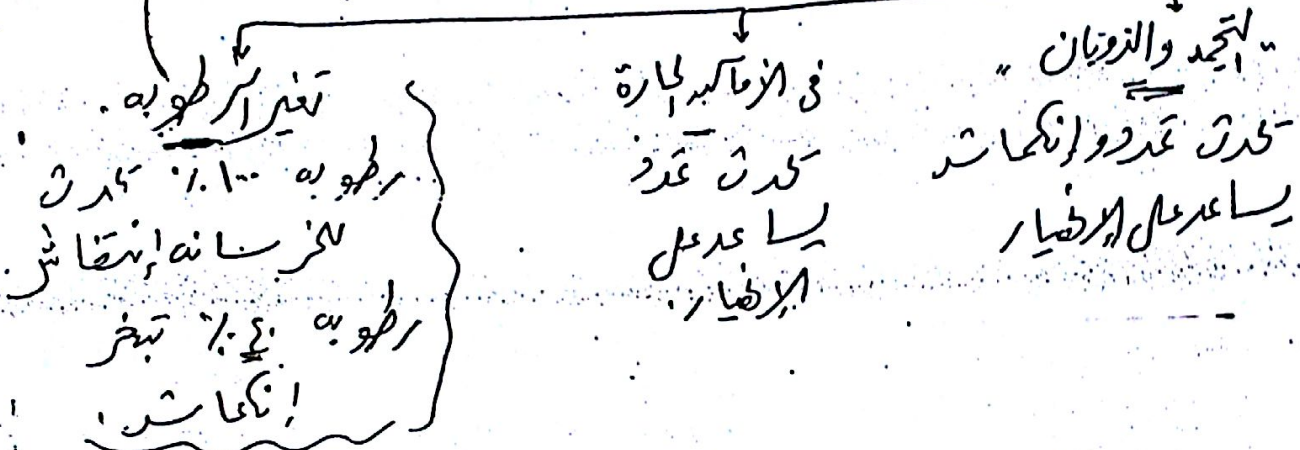 "التجمد والذوبان"
تحدث تمدد وإنكماش
يساعد على الإنهيار
في الأماكن الحارة
تحدث تمدد
يساعد على
الإنهيار.
تغير الرطوبه.
رطوبه ١٠٠٪ تحدث
للخرسانه إنتفاش
رطوبه ٤٠٪ تبخر
إنكماش.